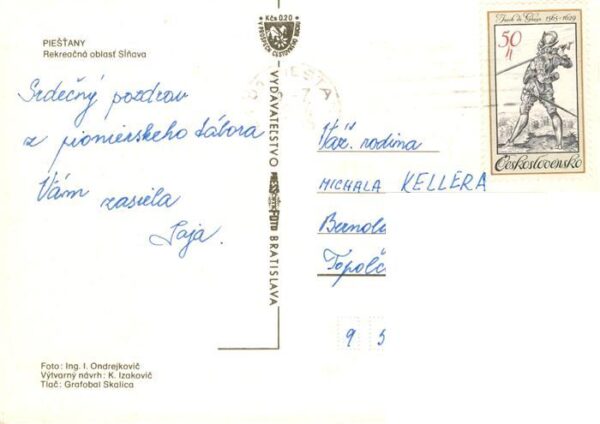 PIEŠŤANY
Rekreačná oblasť Sĺňava
Kčs 0,20
V PROSPECH CESTOVNÉHO RUCHU
Jacob de Gheyn 1565-1629
50
h
Československo
PIEŠŤA
VYDAVATEĽSTVO
FOTO BRATISLAVA
Srdečný pozdrav
z pionierskeho tábora
Vám zasiela
Váž. rodina
MICHALA KELLERA
Bernolá
Topoľč
9
Foto: Ing. I. Ondrejkovič
Výtvarný návrh: K. Izakovič
Tlač: Grafobal Skalica